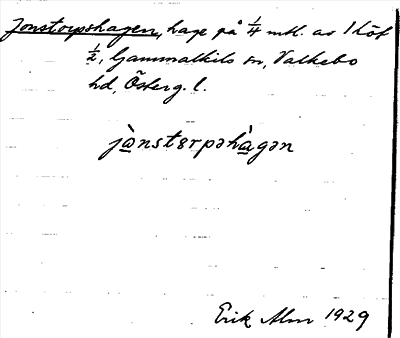 Jonstorpshagen, hage på 1/4 mtl. av 1 Löt
1/2, Gammalkils sn, Valkebo
hd, Österg. l.
jànstərpəhàgən
Erik Alm 1929